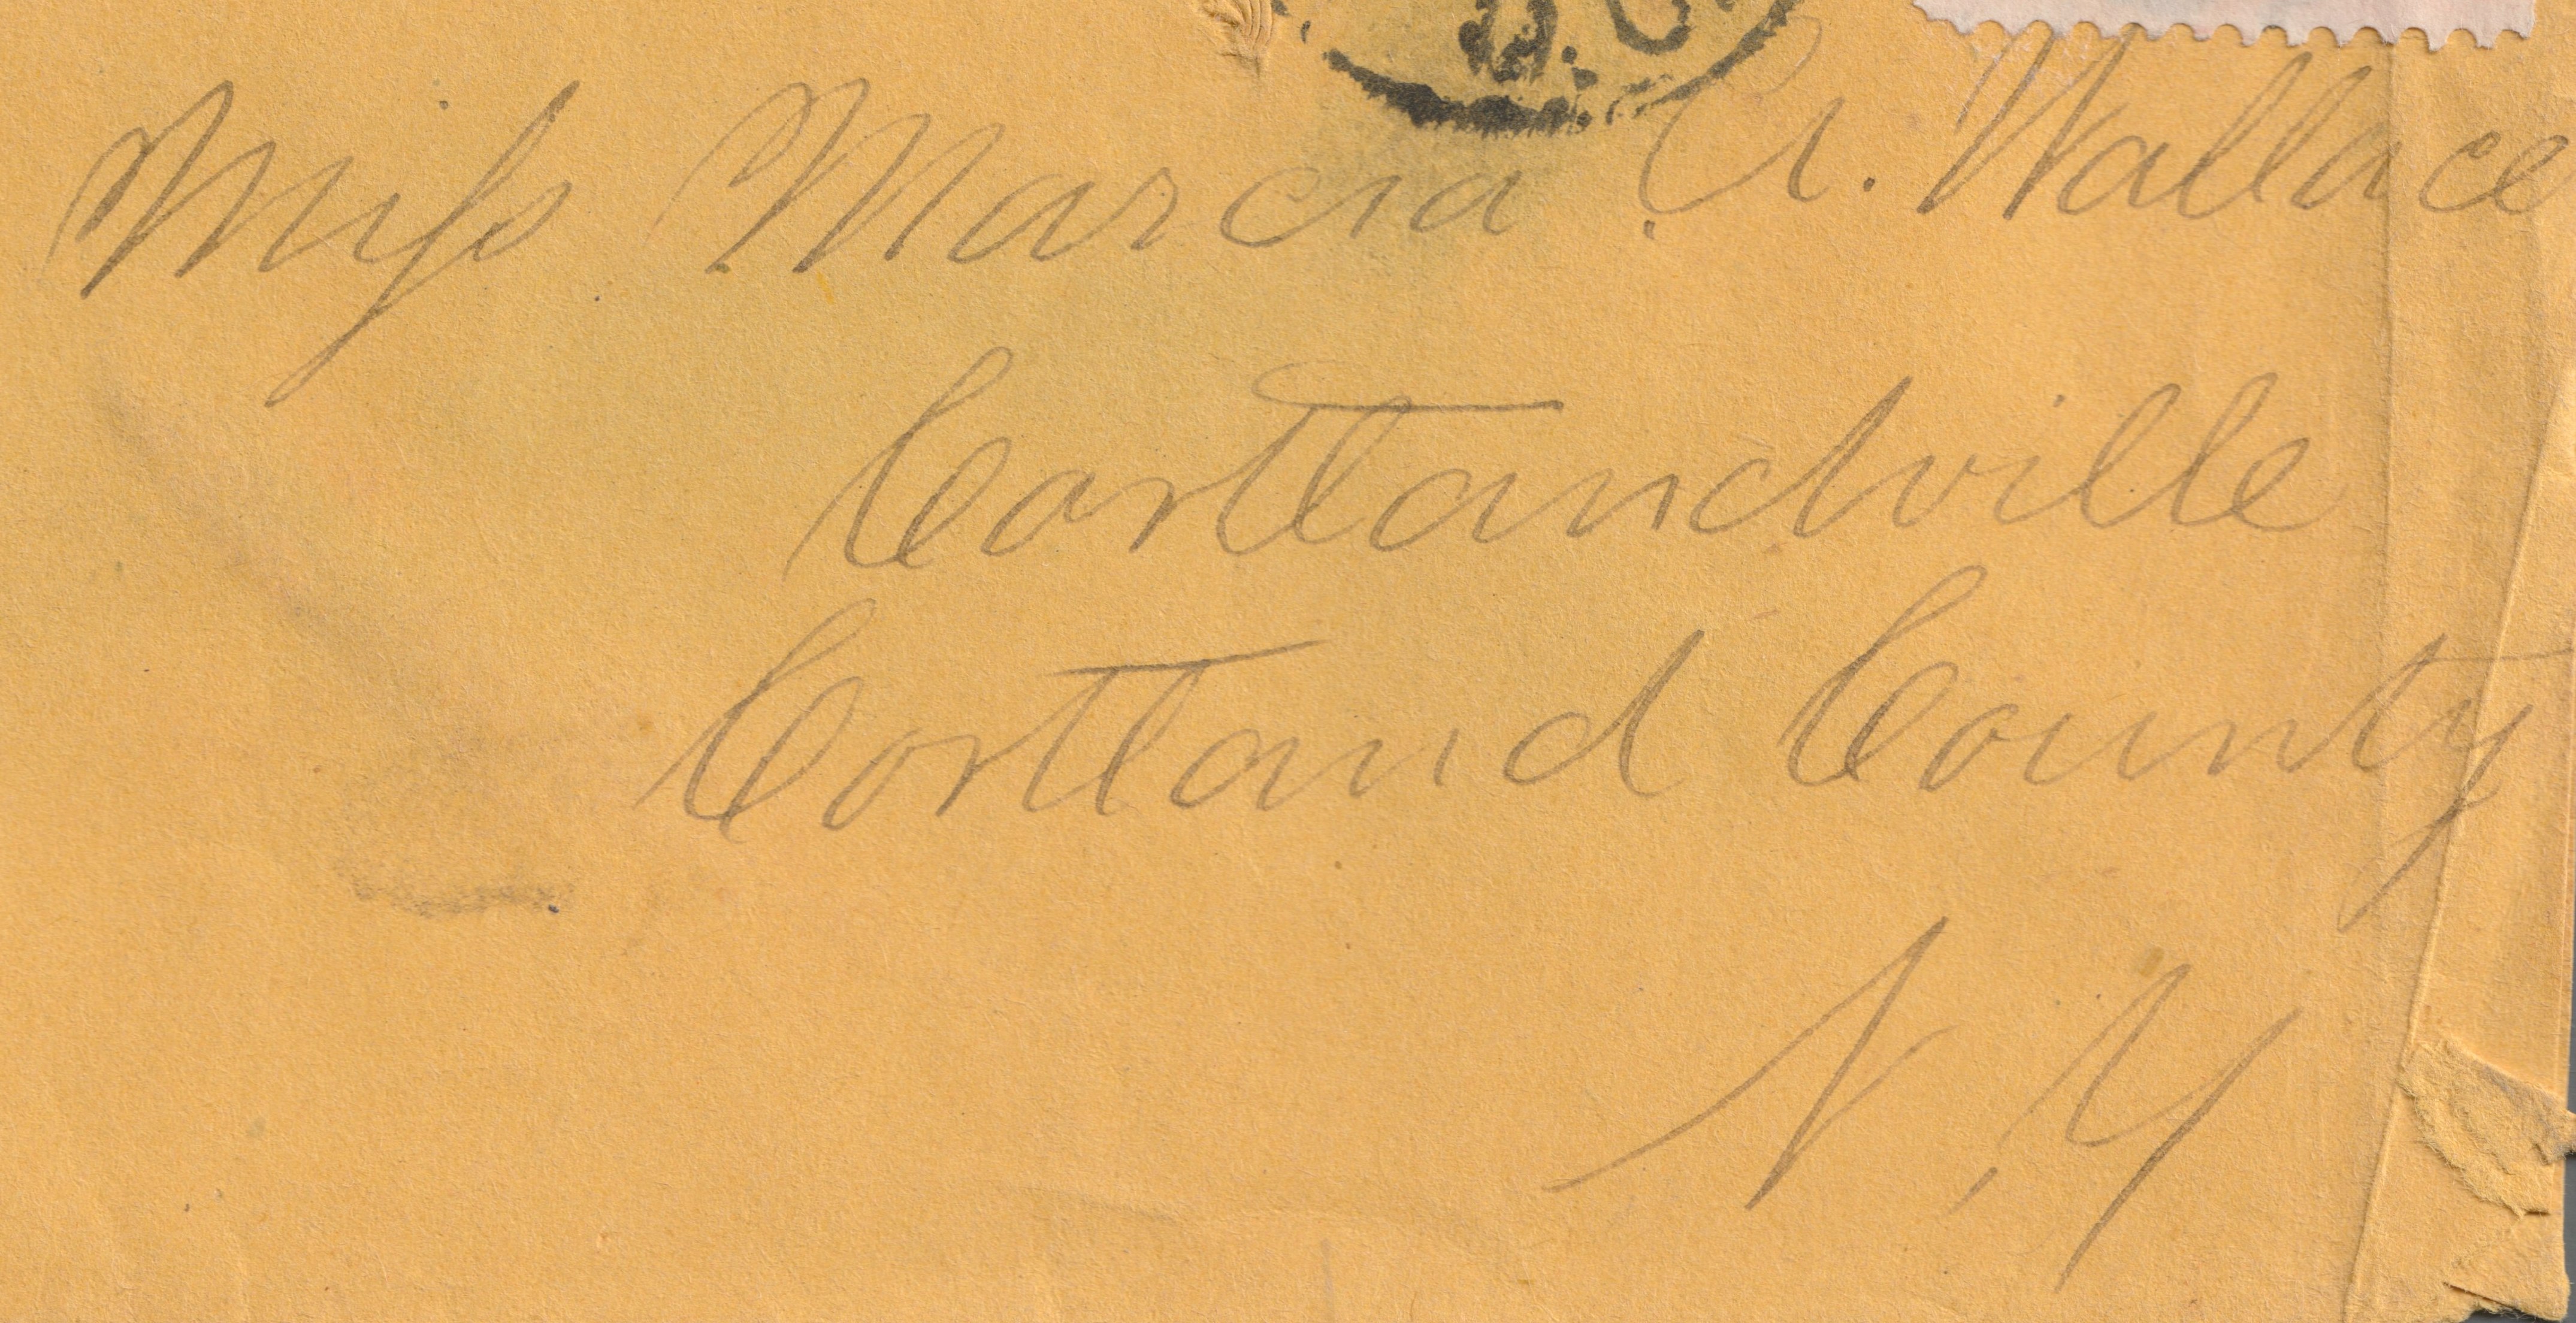 D.C.
Miss Marcia A. Wallace
Cortlandville
Cortland County
N.Y